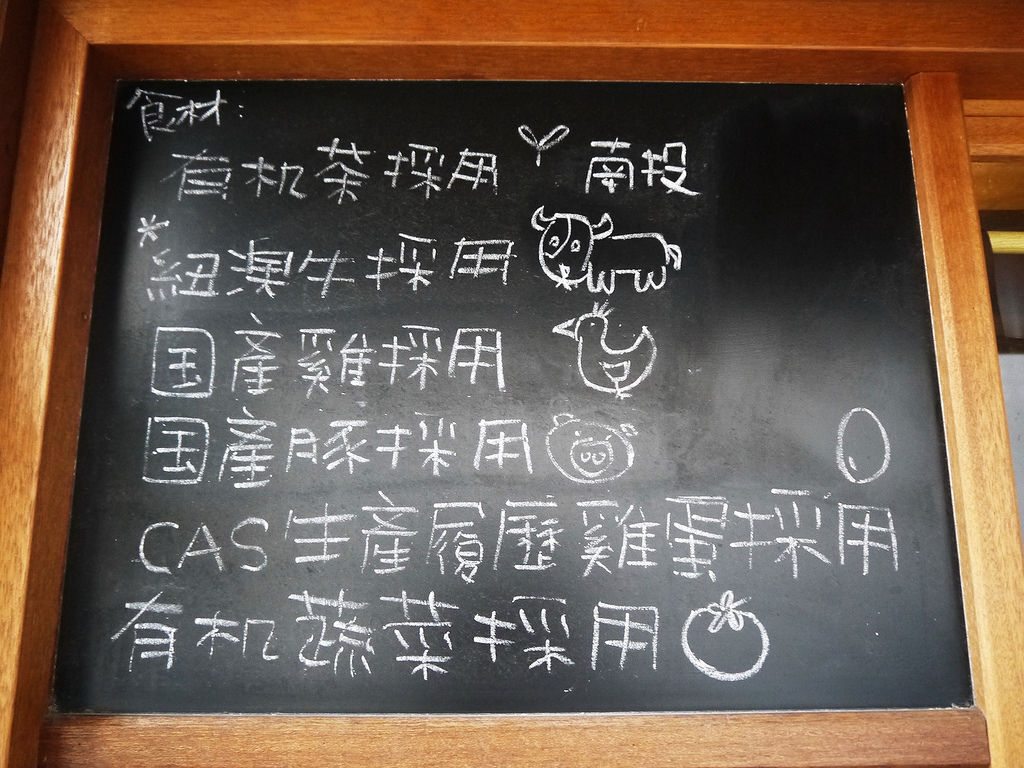 食材:
有机茶採用 南投
*紐澳牛採用
国產雞採用
国產豚採用
CAS生產履歷雞蛋採用
有机蔬菜採用